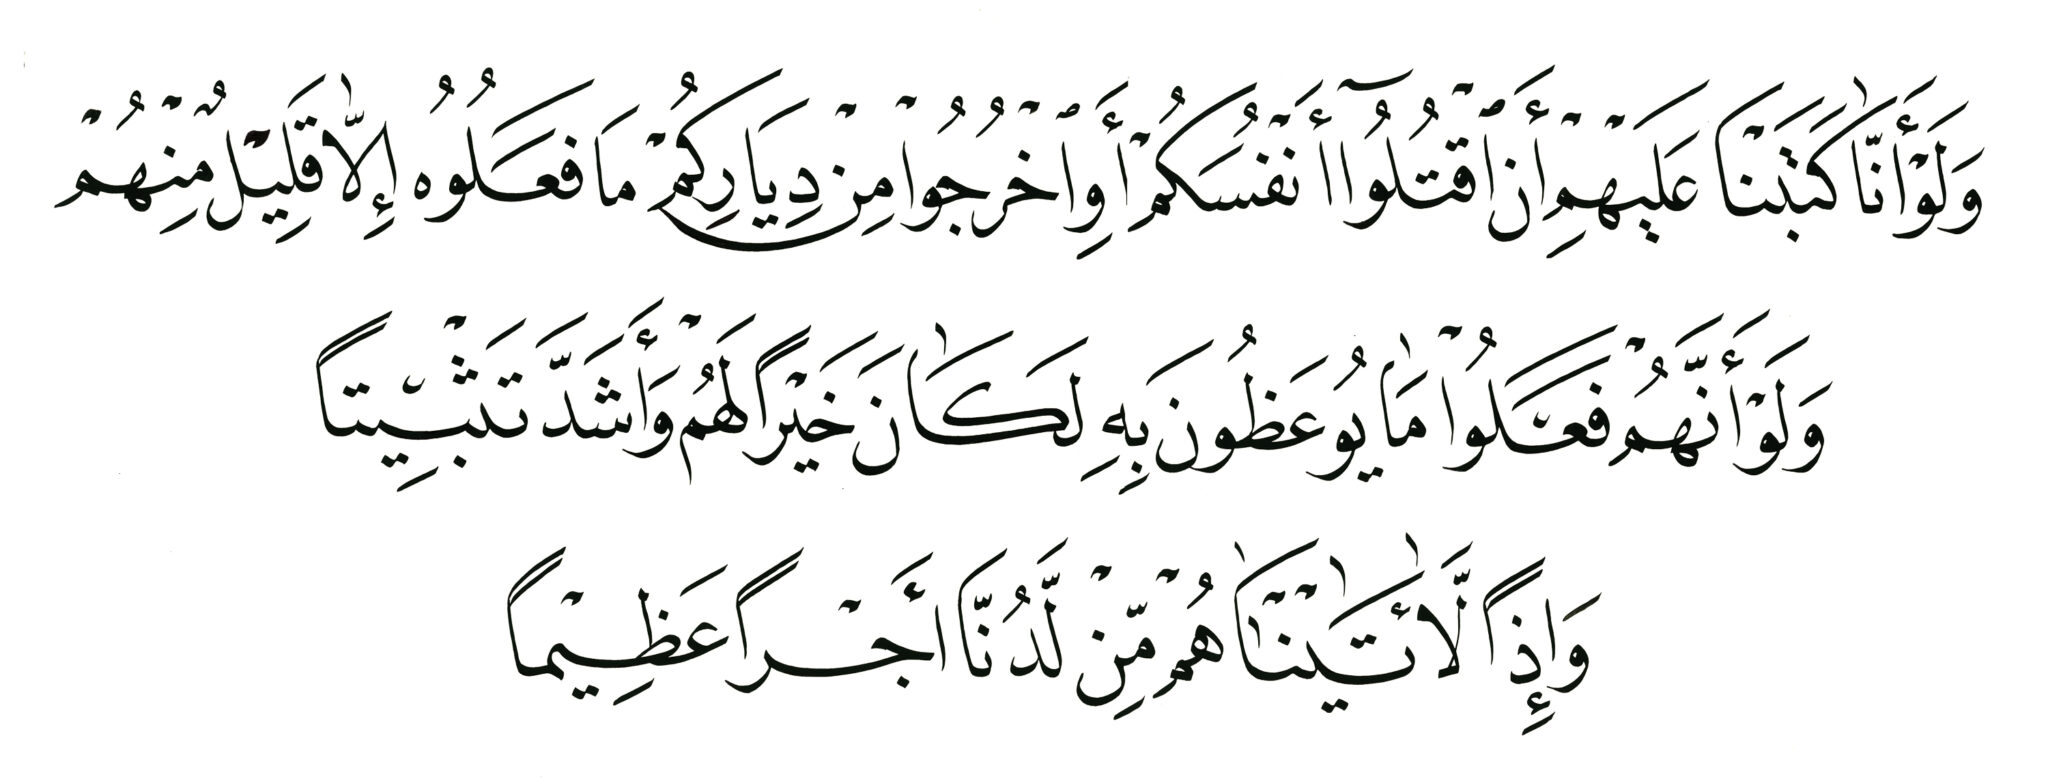 وَلَوْ أَنَّا كَتَبْنَا عَلَيْهِمْ أَنِ ٱقْتُلُوٓا۟ أَنْفُسَكُمْ أَوِ ٱخْرُجُوا۟ مِنْ دِيَارِكُمْ مَا فَعَلُوهُ إِلَّا قَلِيلٌ مِنْهُمْ
وَلَوْ أَنَّهُمْ فَعَلُوا۟ مَا يُوعَظُونَ بِهِ لَكَانَ خَيْرًا لَهُمْ وَأَشَدَّ تَثْبِيتًا
وَإِذًا لَّأٓتَيْنَٰهُمْ مِّنْ لَّدُنَّا أَجْرًا عَظِيمًا